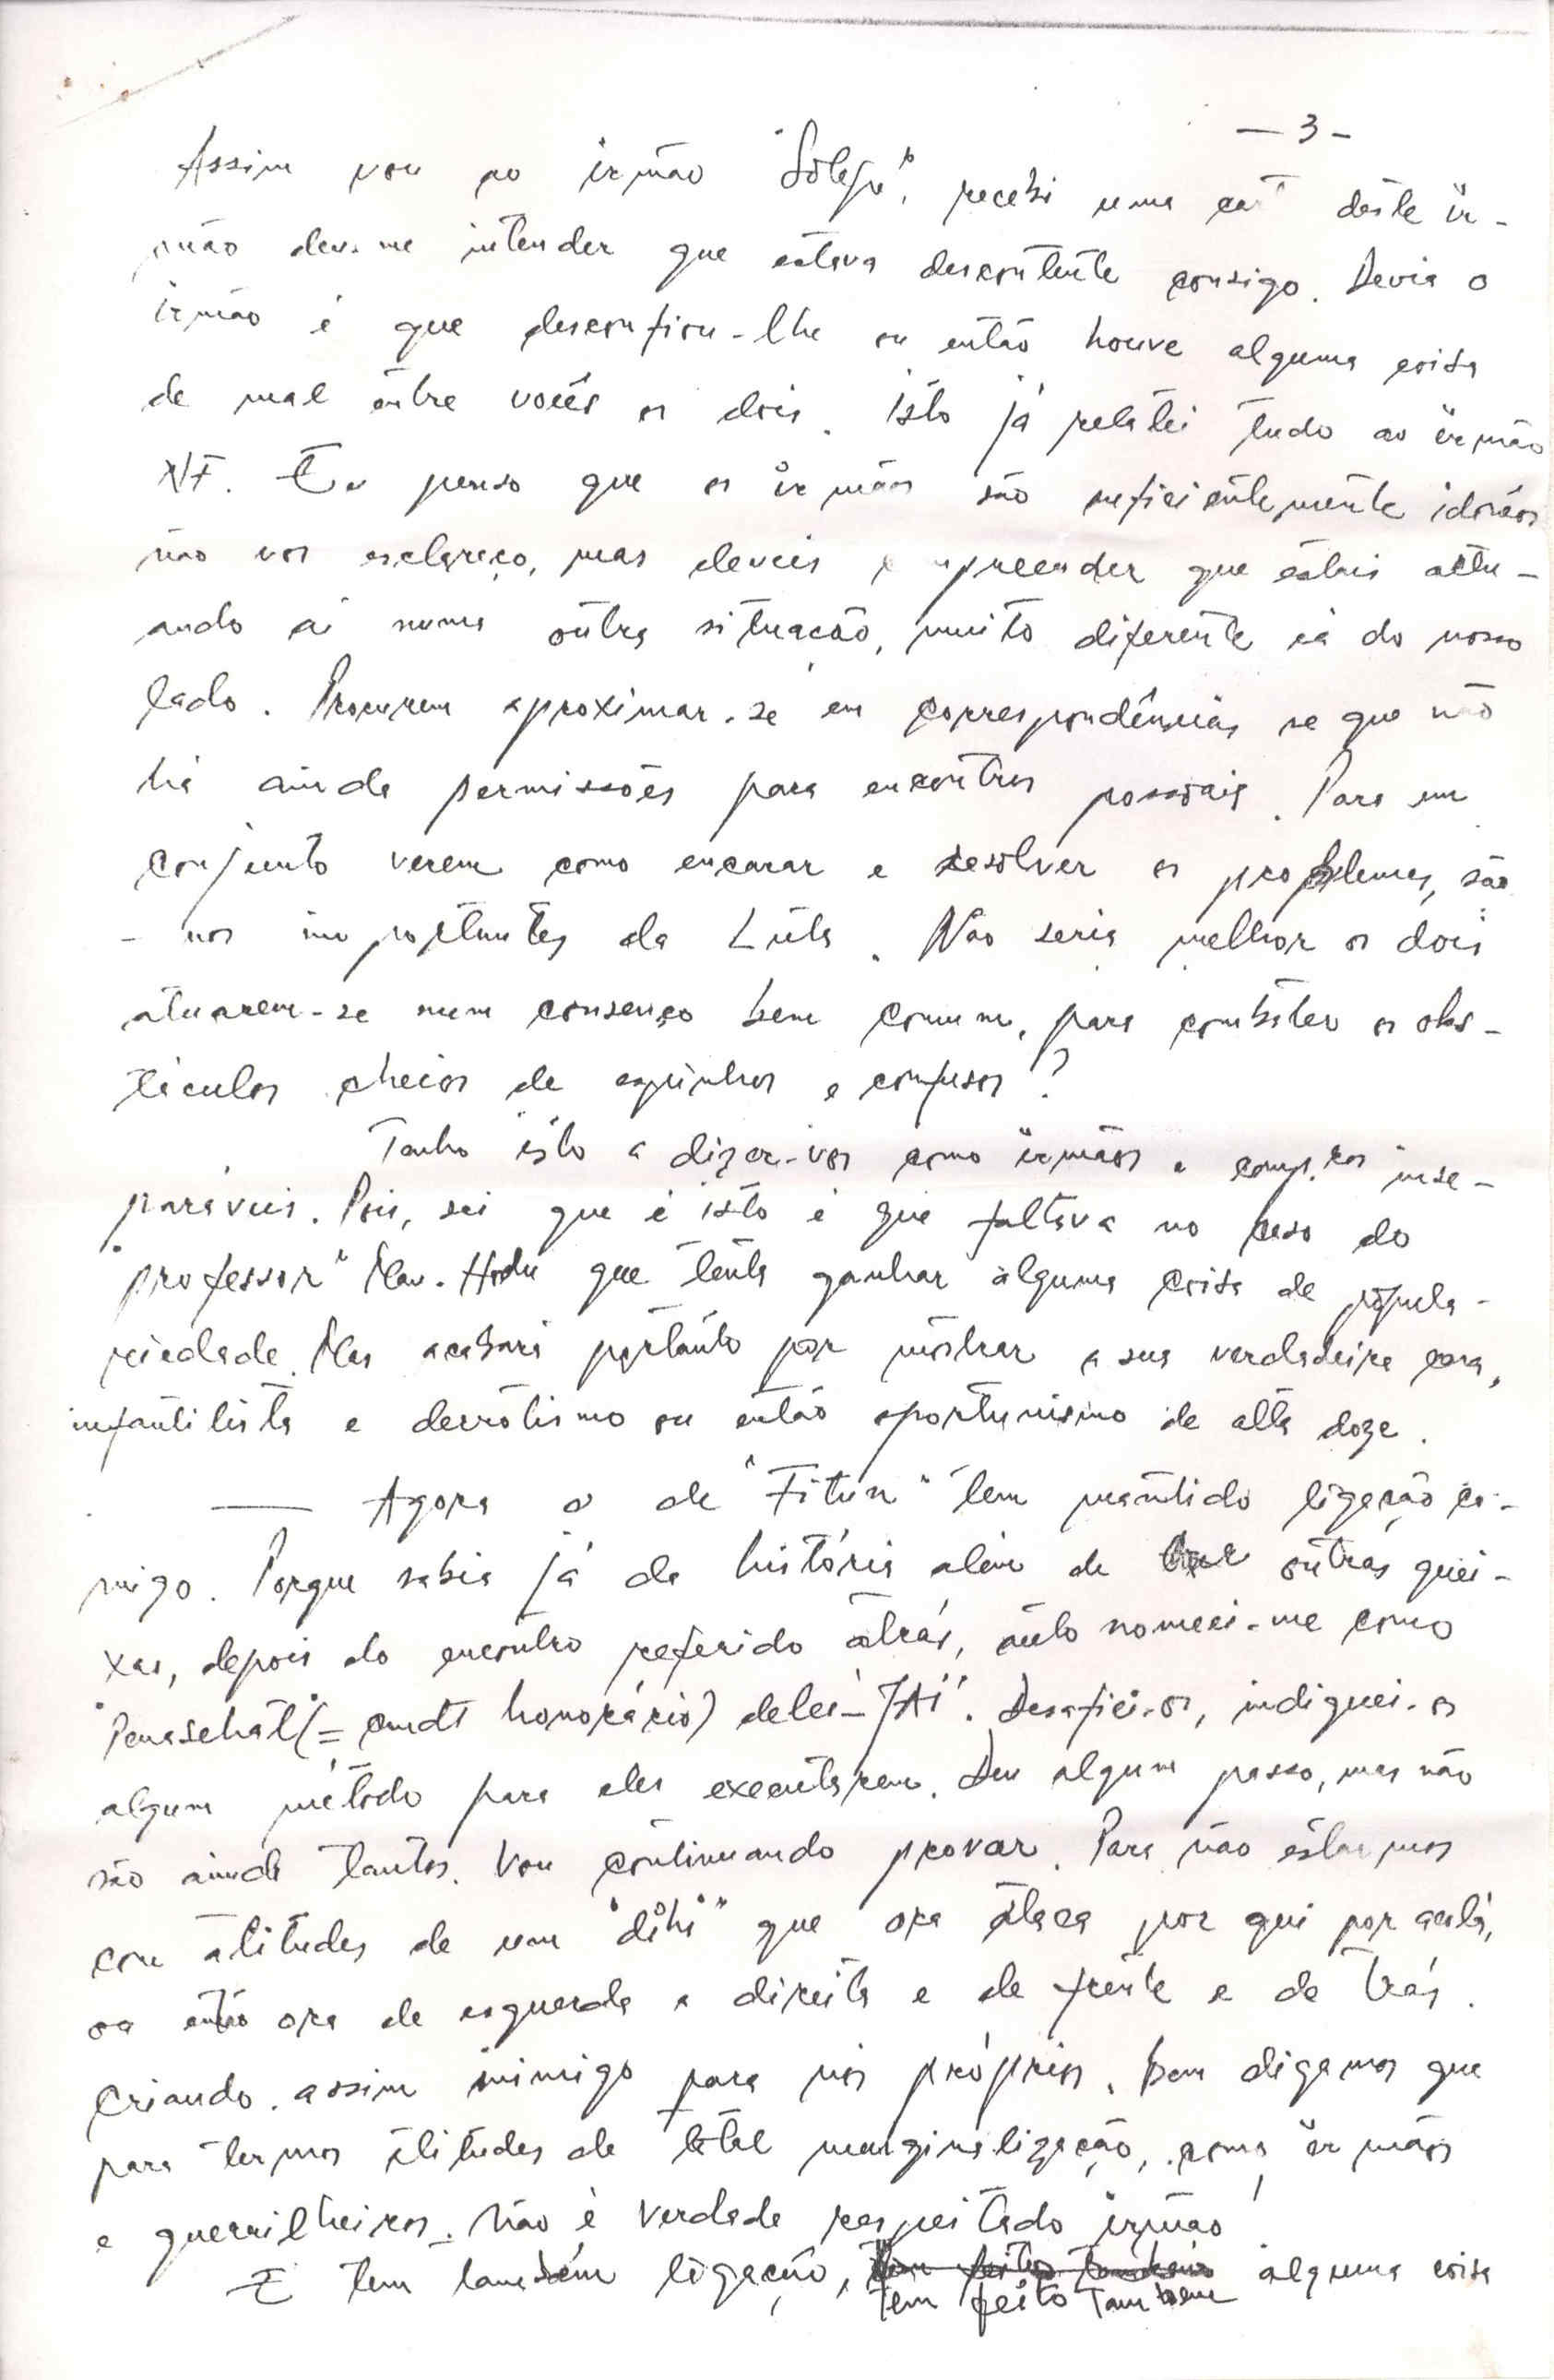 - 3 -
Assim vou ao irmão "Solesu", recebi uma car deste ir-
mão deu-me intender que estava descontente consigo. Devia o
irmão é que desconfiou-lhe ou então houve alguma coisa
de mal entre vocês os dois. Isto já relatei tudo ao irmão
NF. Eu penso que os irmãos são suficientemente idóneos
não vos esclareço, mas deveis preender que estais actu-
ando aí numa outra situação, muito diferente cá do nosso
lado. Procurem aproximar-se em correspondências se que não
há ainda permissões para encontros possoais. Para em
conjunto verem como encarar e resolver os problemas, são
- nos importantes da Luta. Não seria melhor os dois
atuarem-se num consenço bem comum, para combater os obs-
táculos cheios de espinhos e confusos?
Tenho isto a dizer-vos como irmãos e comp.ros inse-
paráveis. Pois, sei que é isto é que faltava no caso do
"professor" Mau-Hodu que tenta ganhar alguma coisa de popula-
riedade. Mas acabará portanto por mostrar a sua verdadeira cara,
infantilista e derrotismo ou então oportunismo de alta doze.
— Agora o de "Fitun" tem mantido ligação co-
migo. Porque sabia já da história além de outras quei-
xas, depois do encontro referido atrás, auto nomeei-me como
"Penasehat" (= cmdt honorário) deles - JAÍ. Desafiei-os, indiquei-os
algum método para eles executarem. Deu algum passo, mas não
são ainda tantos. Vou continuando provar. Para não estarmos
com atitudes de um "dihi" que ora ataca por qui por aculá,
ou então ora de esquerda e direita e de frente e de trás.
Criando assim inimigo para nós próprios. Bem digamos que
para termos atitudes de total marginalização, como irmãos
e guerrilheiros. Não é verdade respeitado irmão
E tem também ligação, tem feito também alguma coisa